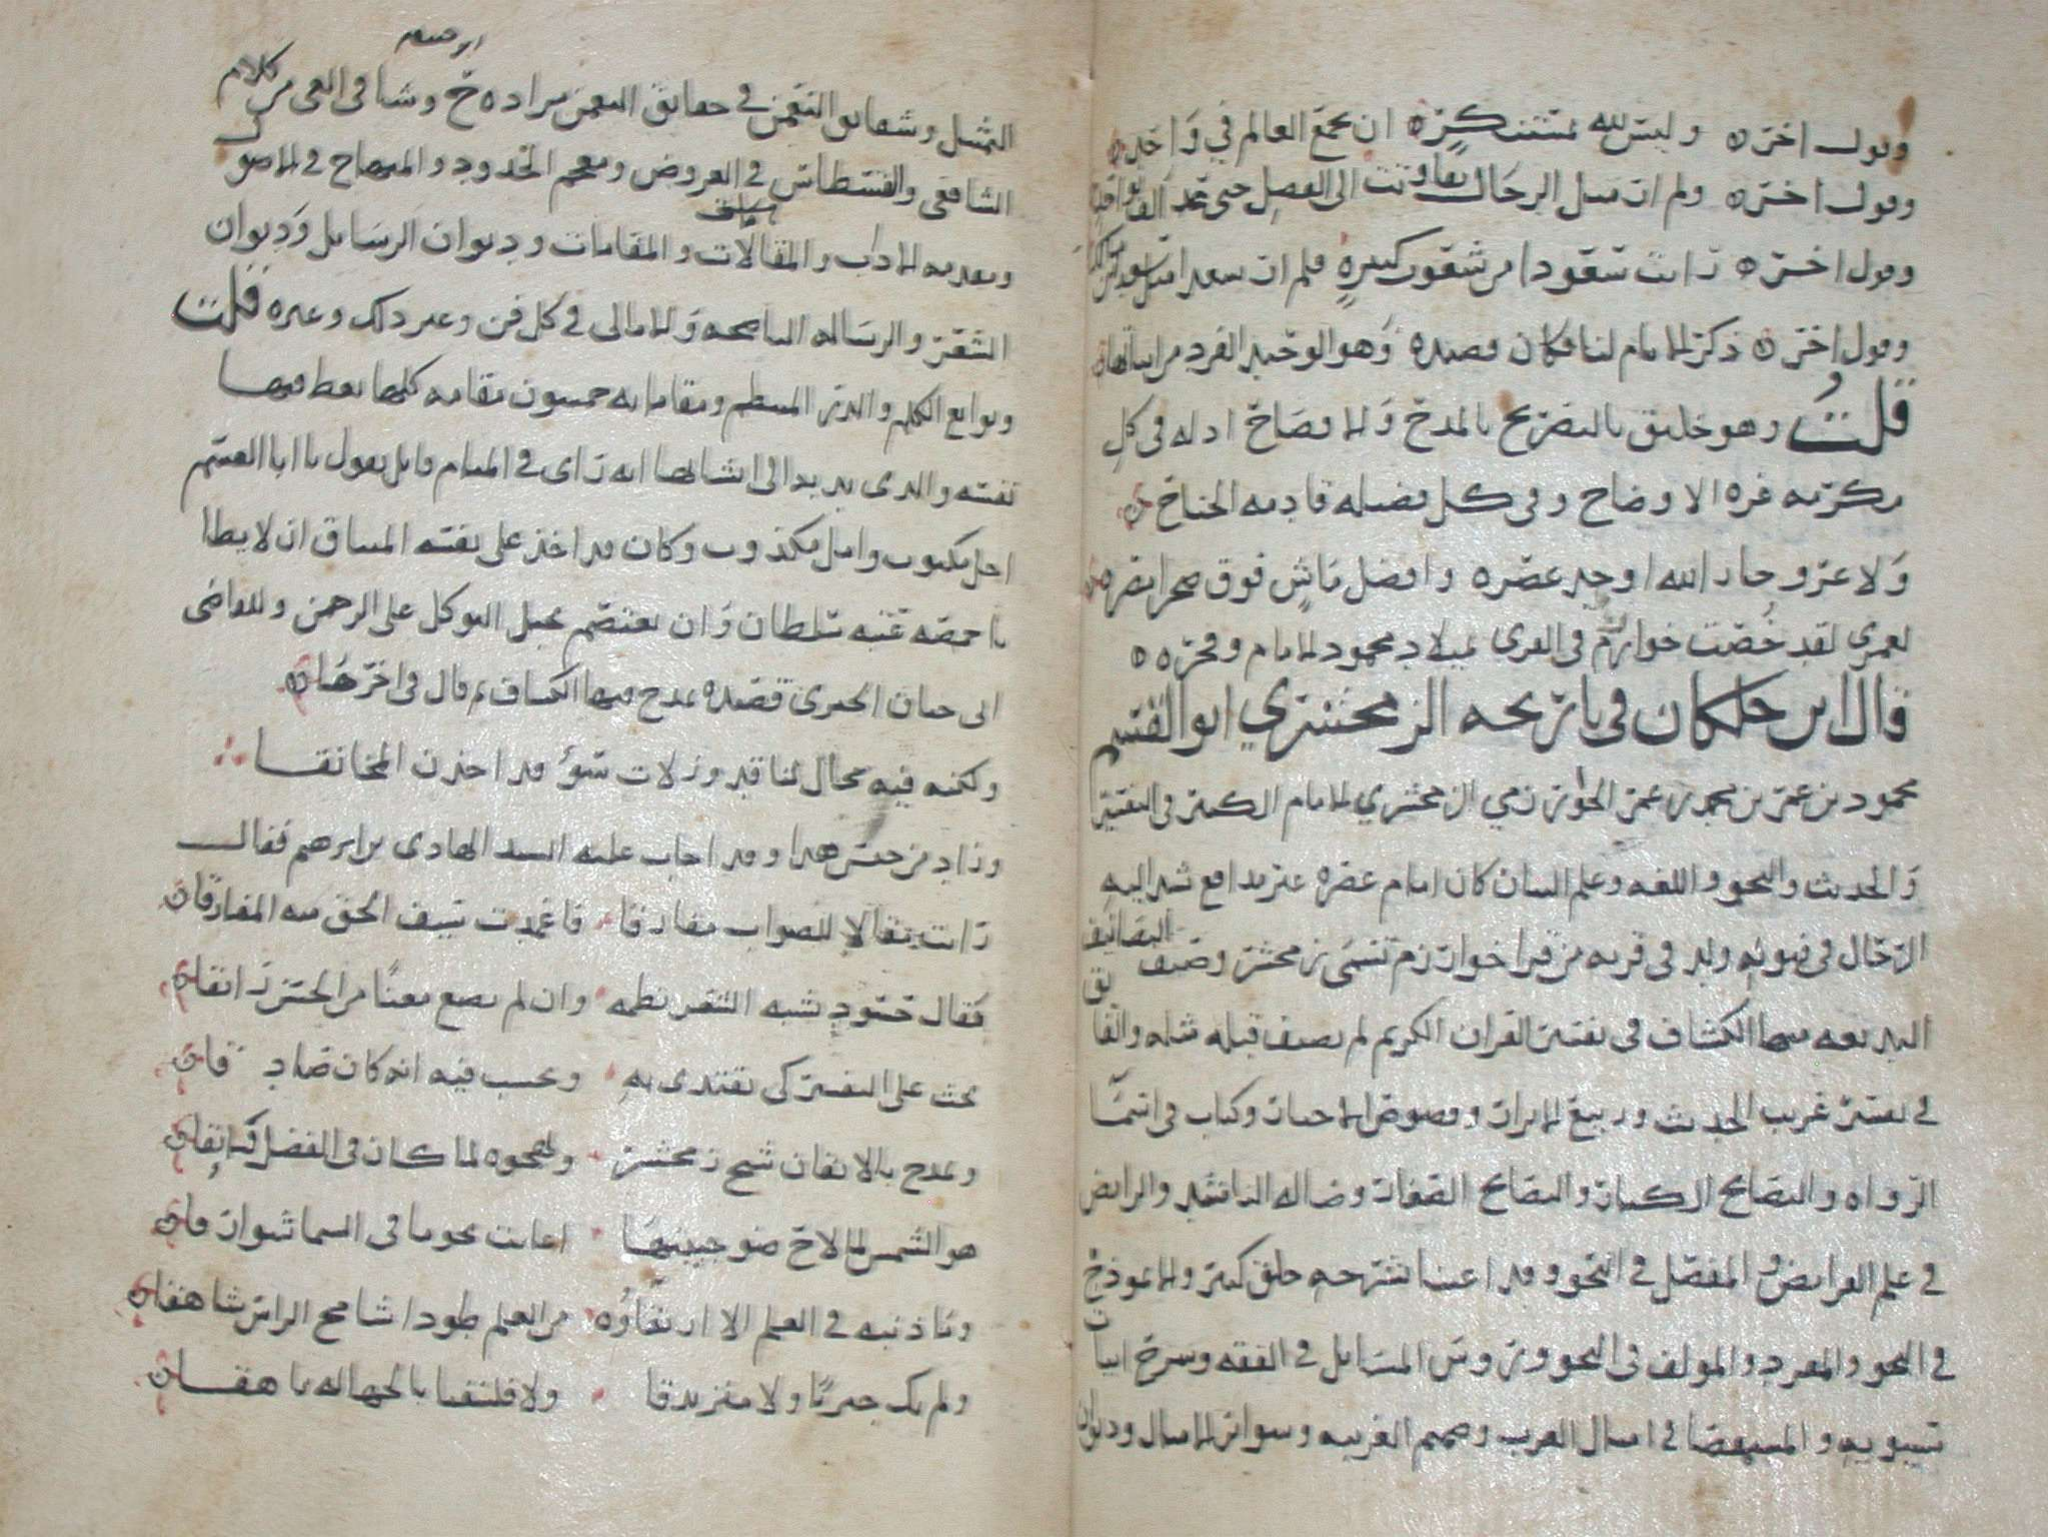 وقول اخره وليس لله بمستنكره ان يجمع العالم في واحد
وقول اخره ولم ار مثل الرجال تفاوتت الى الفضل حتى عد الف بواحد
وقول اخره رايت سعودا من شعوب كثيرة فلم ار سعدا مثل سعد بن مالك
وقول اخره ذكر الامام لنا فكان قصيده وهو الوحيد الفرد من ابياتها
قلت وهو خليق بالتصريح بالمدح والافصاح اذ له في كل
مكرمة غرة الاوضاح وفي كل فضيلة قادمة الجناح
ولا غرو جار الله اوحد عصره وافضل ماش فوق
لعمري لقد خصت خوارزم في القرى بميلاد محمود الامام وفخره
قال ابن خلكان في تاريخه الزمخشري ابو القسم
محمود بن عمر بن محمد بن عمر الخوارزمي الزمخشري الامام الكبير في التفسير
والحديث والنحو واللغه وعلم البيان كان امام عصره غير مدافع تشد اليه
الرحال في فنونه ولد في قريه من قرا خوارزم تسمى زمخشر وصنف التصانيف
البديعه منها الكشاف في تفسير القران الكريم لم يصنف قبله مثله والفايق
في تفسير غريب الحديث وربيع الابرار وفصوص الاخبار وكتاب في اسما
الرواه والنصايح الكبار والنصايح الصغار وضاله الناشد والرايض
في علم الفرايض والمفصل في النحو وقد اعتنا بشرحه خلق كثير والانموذج
في النحو والمفرد والمولف في النحو وروس المسايل في الفقه وشرح ابيات
سيبويه والمستقصا في امثال العرب وصميم العربيه وسواير الامثال وديوان
التمثيل وشقايق النعمن في حقايق النعمن مراده ابو حنيفه وشافي العي من كلام
الشافعي والقسطاس في العروض ومعجم الحدود والمنهاج في الاصول
ومقدمه الادب والمقالات والمقامات وديوان الرسايل وديوان
الشعر والرساله الناصحه والامالي في كل فن وغير ذلك وغيره قلت
ونوابغ الكلم والدر المنتظم ومقاماته خمسون مقامه كلها يعظ فيها
نفسه والذي ندبه الى انشائها انه راى في المنام قايل يقول يا ابا القسم
اجل مكتوب وامل مكذوب وكان قد اخذ على نفسه الميثاق ان لا يطا
باخمصه عتبه سلطان وان يعتصم بحبل التوكل على الرحمن وللقاضي
ابي حيان قصيده مدح فيها الكشاف قال في اخرها
ولكنه فيه مجال لناقد وزلات سوء قد اخذن المخانقا
وزاد من جنس هذا وقد اجاب عليه السيد الهادي بن ابرهيم فقال
رايت مقالا للصواب مفارقا فاغمدت سيف الحق منه المفارقا
فقال حسود شبه الشعر نظمه وان لم يصغ معنا من الحسن رايقا
يحث على التفسير كي نقتدي به ونحسب فيه انه كان صادقا
ويمدح بالاتقان شيخ زمخشر ويهجوه لما كان في الفضل فايقا
هو الشمس لما لاح ضو جبينها اعابت نجوما في السما شوارقا
وما ذنبه في العلم الا ارتقاوه من العلم طودا شامخ الراس شاهقا
ولم يك جبريا ولا متزندقا ولا فلتقيا بالجهاله ناهقا